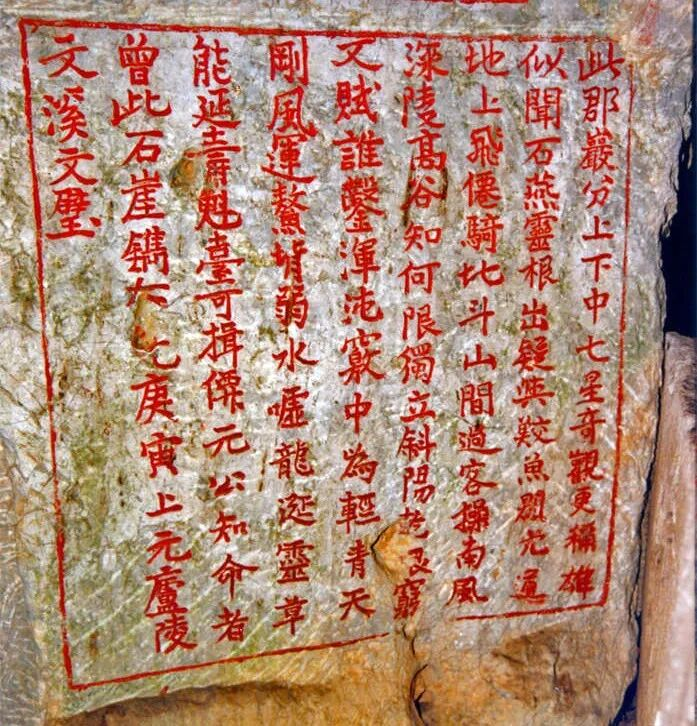 此郡巖分上下中七星奇觀更稱雄
似聞石燕靈根出疑與鮫魚穴通
地上飛僊騎北斗山間過客操南風
深陵高谷知何限獨立斜陽窮
又賦誰鑿渾沌竅中為輕青天
剛風運鰲背弱水噓龍涎靈草
能延壽魁臺可揖僊元公知命者
曾此石崖鐫大元庚寅上元廬陵
文溪文璧